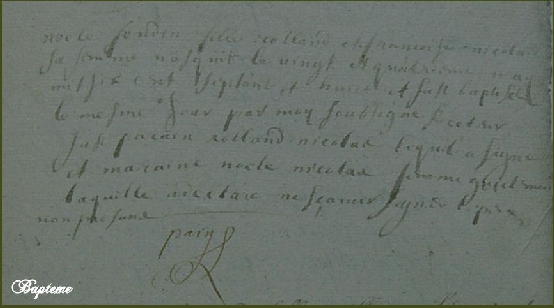 noele fille rolland et francoise nicolas
sa femme nasquit le vingt et quatrieme may
mil six cent septante et et fust baptisee
le mesme Jour par moy soubsigne Recteur
fust parain rolland nicolas lequel a signe
et maraine noele nicolas femme
laquelle a declare ne sçavoir signer
non present
Bapteme